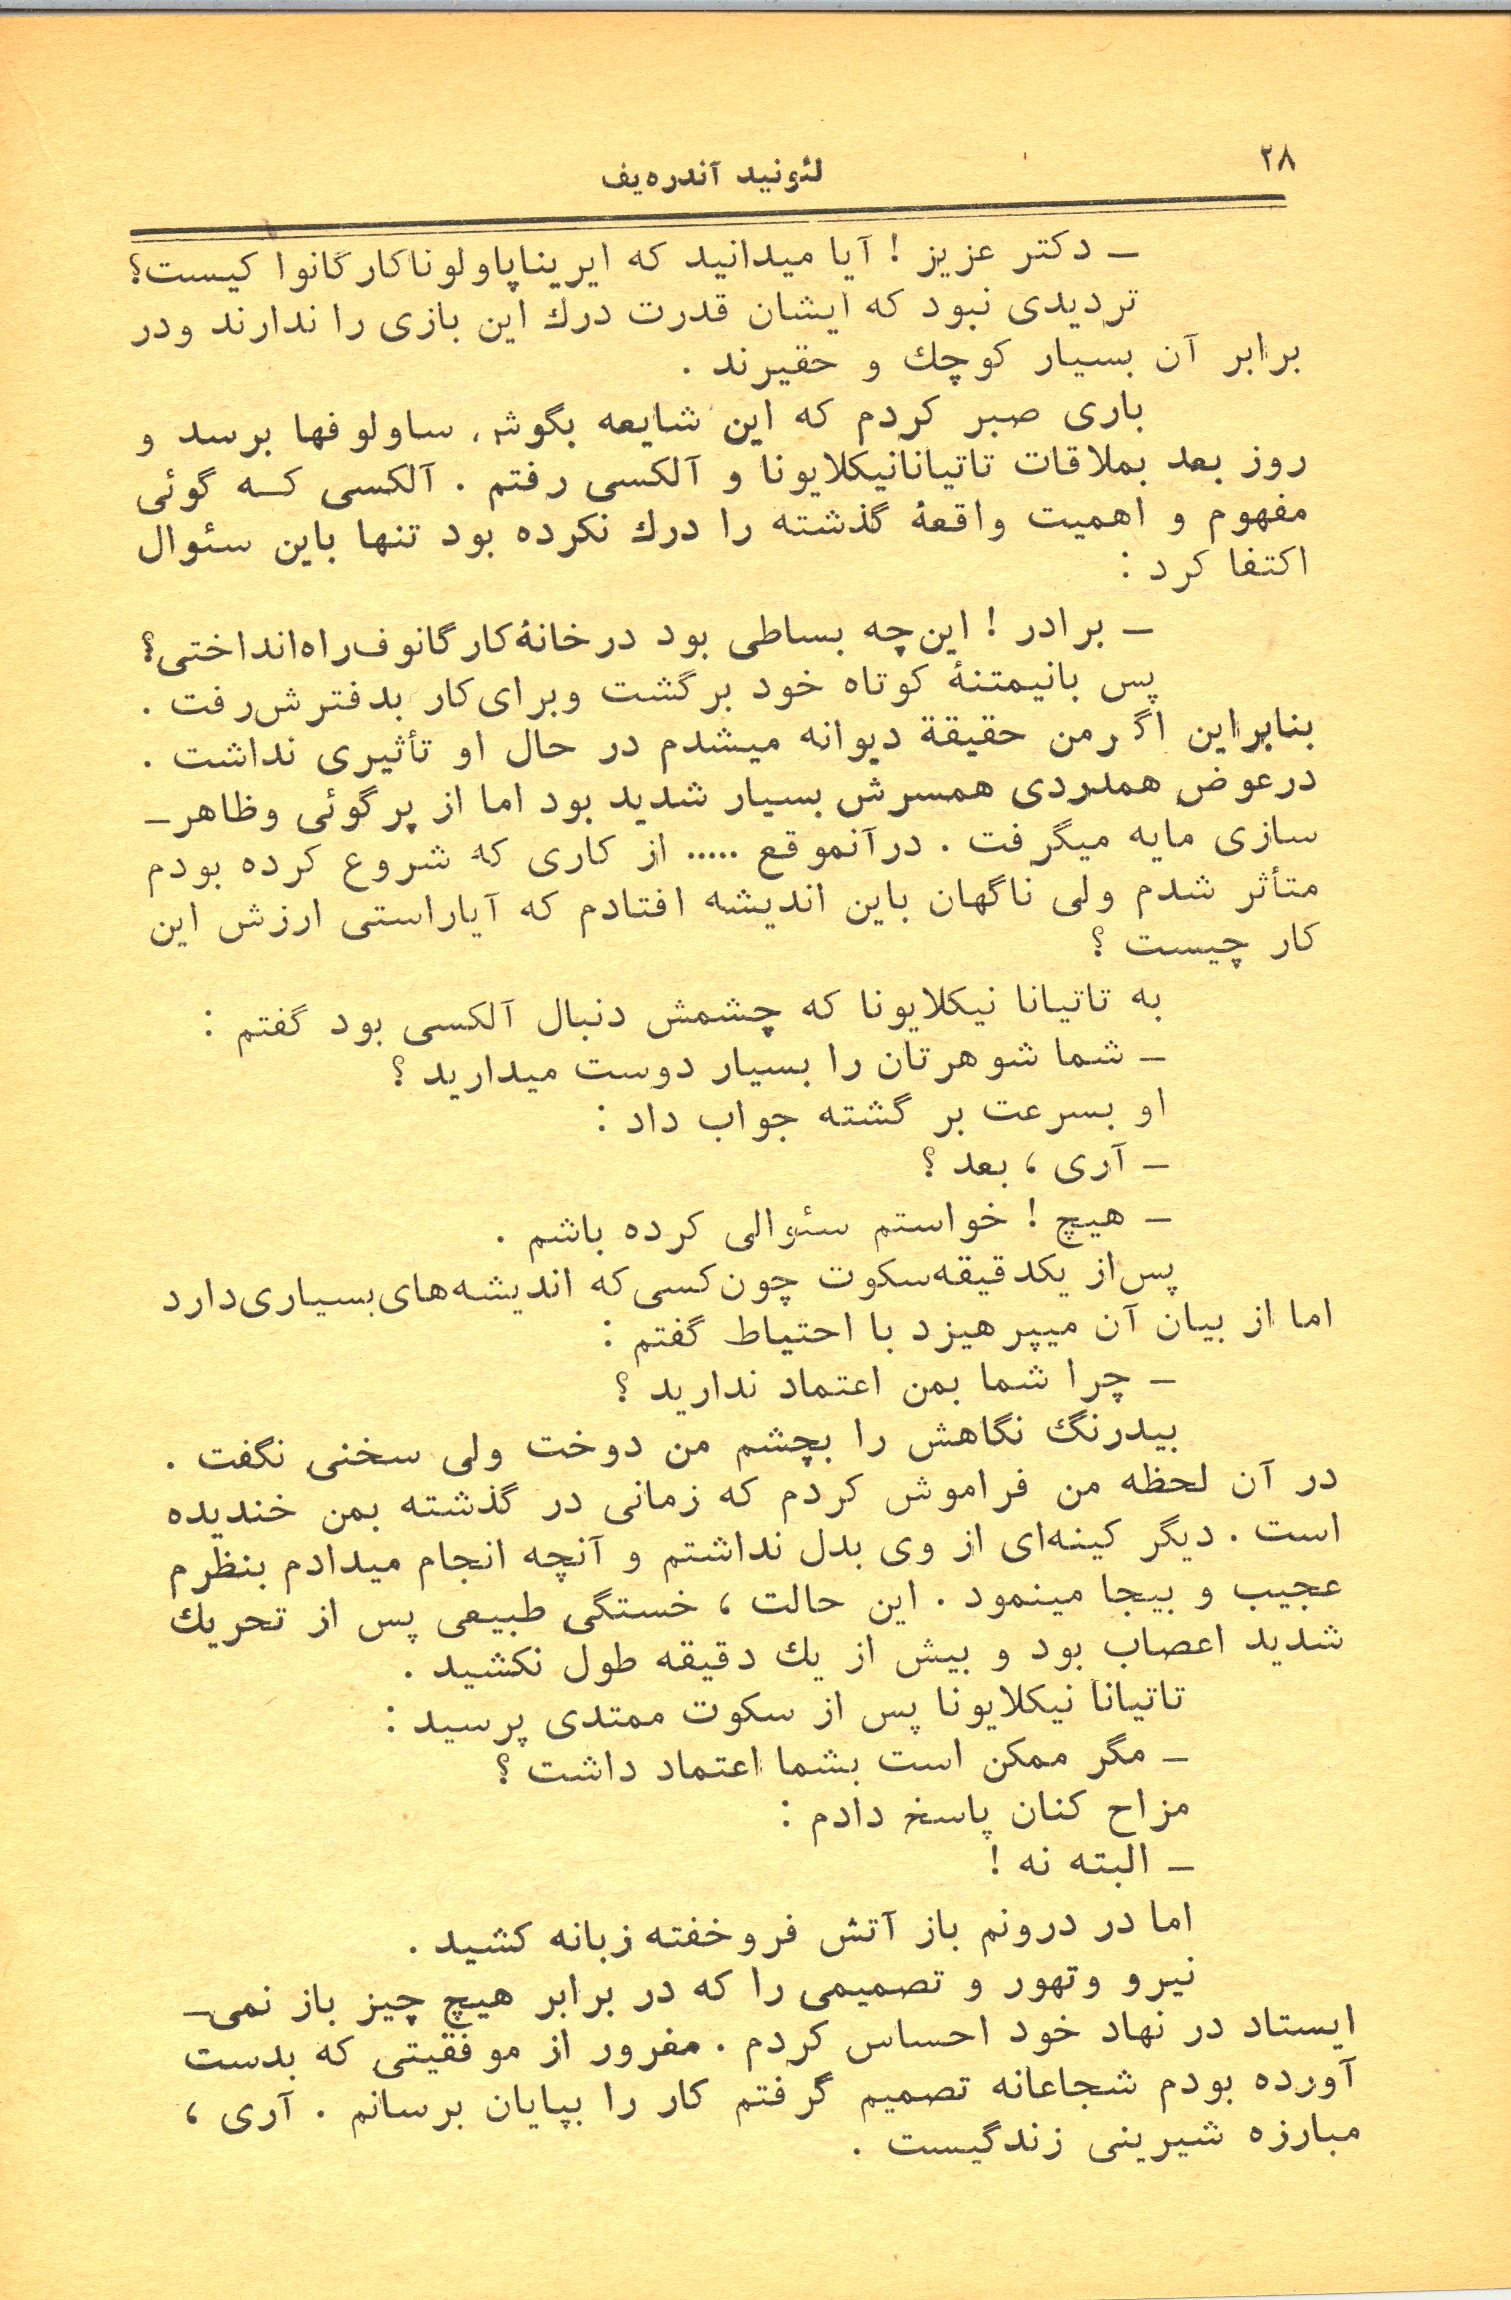 ۲۸
لئونید آندره‌یف
ـ دکتر عزیز ! آیا میدانید که ایریناپاولوناکارگانوا کیست؟
تردیدی نبود که ایشان قدرت درك این بازی را ندارند ودر
برابر آن بسیار کوچك و حقیرند .
باری صبر کردم که این شایعه بگوش ساولوفها برسد و
روز بعد بملاقات تاتیانانیکلایونا و آلکسی رفتم . آلکسی کـه گوئی
مفهوم و اهمیت واقعهٔ گذشته را درك نکرده بود تنها باین سئوال
اکتفا کرد :
ـ برادر ! این‌چه بساطی بود درخانهٔ‌کارگانوف‌راه‌انداختی؟
پس بانیمتنهٔ کوتاه خود برگشت وبرای‌کار بدفترش‌رفت .
بنابراین اگرمن حقیقة دیوانه میشدم در حال او تأثیری نداشت .
درعوض همدردی همسرش بسیار شدید بود اما از پرگوئی وظاهرـ
سازی مایه میگرفت . درآنموقع ..... از کاری که شروع کرده بودم
متأثر شدم ولی ناگهان باین اندیشه افتادم که آیاراستی ارزش این
کار چیست ؟
به تاتیانا نیکلایونا که چشمش دنبال آلکسی بود گفتم :
ـ شما شوهرتان را بسیار دوست میدارید ؟
او بسرعت برگشته جواب داد :
ـ آری ، بعد ؟
ـ هیچ ! خواستم سئوالی کرده باشم .
پس‌از یکدقیقه‌سکوت چون‌کسی‌که اندیشه‌های‌بسیاری‌دارد
اما از بیان آن میپرهیزد با احتیاط گفتم :
ـ چرا شما بمن اعتماد ندارید ؟
بیدرنگ نگاهش را بچشم من دوخت ولی سخنی نگفت .
در آن لحظه من فراموش کردم که زمانی در گذشته بمن خندیده
است . دیگر کینه‌ای از وی بدل نداشتم و آنچه انجام میدادم بنظرم
عجیب و بیجا مینمود . این حالت ، خستگی طبیعی پس از تحریك
شدید اعصاب بود و بیش از یك دقیقه طول نکشید .
تاتیانا نیکلایونا پس از سکوت ممتدی پرسید :
ـ مگر ممکن است بشما اعتماد داشت ؟
مزاح کنان پاسخ دادم :
ـ البته نه !
اما در درونم باز آتش فروخفته زبانه کشید .
نیرو وتهور و تصمیمی را که در برابر هیچ چیز باز نمی‌ـ
ایستاد در نهاد خود احساس کردم . مغرور از موفقیتی که بدست
آورده بودم شجاعانه تصمیم گرفتم کار را بپایان برسانم . آری ،
مبارزه شیرینی زندگیست .